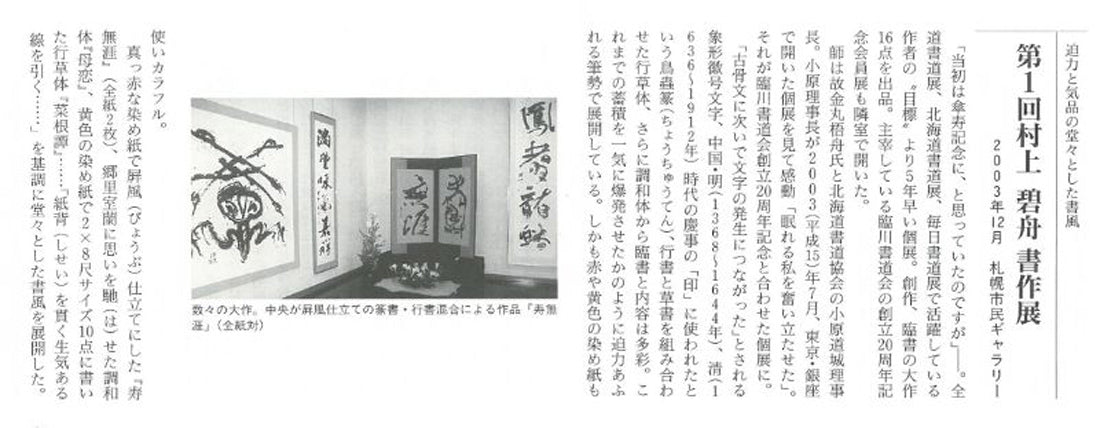 迫力と気品の堂々とした書風
第1回村上 碧舟 書作展
2003年12月 札幌市民ギャラリー
「当初は傘寿記念に、と思っていたのですが」――。全
道書道展、北海道書道展、毎日書道展で活躍している
作者の〝目標〟より5年早い個展。創作、臨書の大作
16点を出品。主宰している臨川書道会の創立20周年記
念会員展も隣室で開いた。
師は故金丸梧舟氏と北海道書道協会の小原道城理事
長。小原理事長が2003(平成15)年7月、東京・銀座
で開いた個展を見て感動「眠れる私を奮い立たせた」。
それが臨川書道会創立20周年記念と合わせた個展に。
「古骨文に次いで文字の発生につながった」とされる
象形徽号文字、中国・明(1368~1644年)、清(1
636~1912年)時代の慶事の「印」に使われたと
いう鳥蟲篆(ちょうちゅうてん)、行書と草書を組み合わ
せた行草体、さらに調和体から臨書と内容は多彩。こ
れまでの蓄積を一気に爆発させたかのように迫力あふ
れる筆勢で展開している。しかも赤や黄色の染め紙も
使いカラフル。
真っ赤な染め紙で屏風(びょうぶ)仕立てにした『寿
無涯』(全紙2枚)、郷里室蘭に思いを馳(は)せた調和
体『母恋』、黄色の染め紙で2×8尺サイズ10点に書い
た行草体『菜根譚』……「紙背(しせい)を貫く生気ある
線を引く……」を基調に堂々とした書風を展開した。
数々の大作。中央が屏風仕立ての篆書・行書混合による作品『寿無
涯』(全紙対)